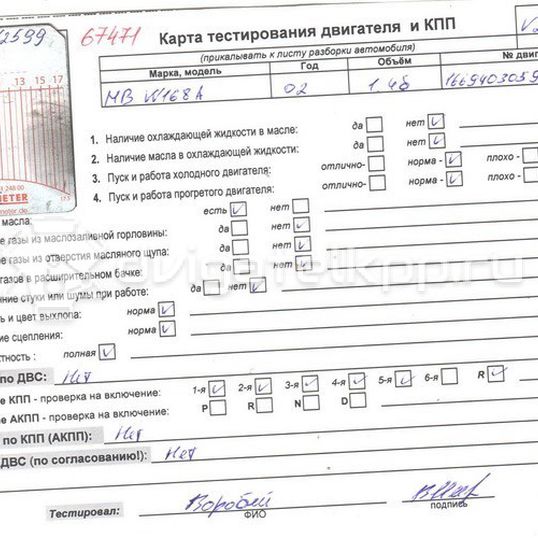 2599 67471 Карта тестирования двигателя и КПП
(прикалывать к листу разборки автомобиля)
13 15 17
Марка, модель Год Объём № двиг
МВ W168A 02 1.4б
1. Наличие охлаждающей жидкости в масле: да нет ✓
2. Наличие масла в охлаждающей жидкости: да нет ✓
3. Пуск и работа холодного двигателя: отлично- норма - ✓ плохо -
4. Пуск и работа прогретого двигателя: отлично- норма - ✓ плохо -
масла: есть ✓ нет
е газы из маслозаливной горловины: да нет ✓
е газы из отверстия масляного щупа: да нет ✓
газов в расширительном бачке: да нет ✓
нние стуки или шумы при работе: да нет ✓
ь и цвет выхлопа: норма ✓
ние сцепления: норма ✓
ктность : полная ✓
по ДВС: Нет
е КПП - проверка на включение: 1-я ✓ 2-я ✓ 3-я ✓ 4-я ✓ 5-я ✓ 6-я R ✓
е АКПП - проверка на включение: P R N D
по КПП (АКПП): Нет
ДВС (по согласованию!): Нет
Тестировал: Воробей
ФИО подпись